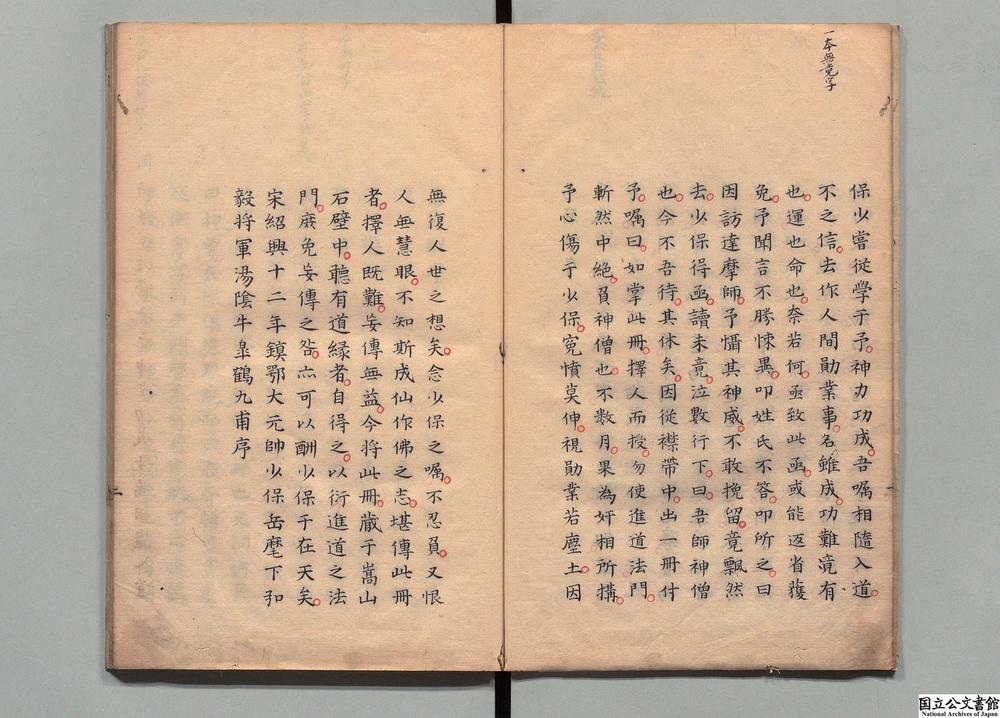 一本無竟字
保少嘗從學于予神力功成吾嘱相隨入道
不之信去作人間勛業事名雖成功難竟有
也運也命也奈若何亟致此函或能返省獲
免予聞言不勝悚異叩姓氏不答叩所之曰
因訪達摩師予懾其神威不敢挽留竟飄然
去少保得函讀未竟泣數行下曰吾師神僧
也今不吾待其休矣因從襟帶中出一冊付
予嘱曰如掌此冊擇人而授勿使進道法門
斬然中絶負神僧也不數月果為奸相所搆
予心傷于少保寃憤莫伸視勛業若塵土因
無復人世之想矣念少保之嘱不忍負又恨
人無慧眼不知斯成仙作佛之志堪傳此冊
者擇人既難妄傳無益今將此冊蔵于嵩山
石壁中聽有道緣者自得之以衍進道之法
門庻免妄傳之咎亦可以酬少保于在天矣
宋紹興十二年鎮鄂大元帥少保岳麾下弘
毅将軍湯陰牛臯鶴九甫序
国立公文書館
National Archives of Japan